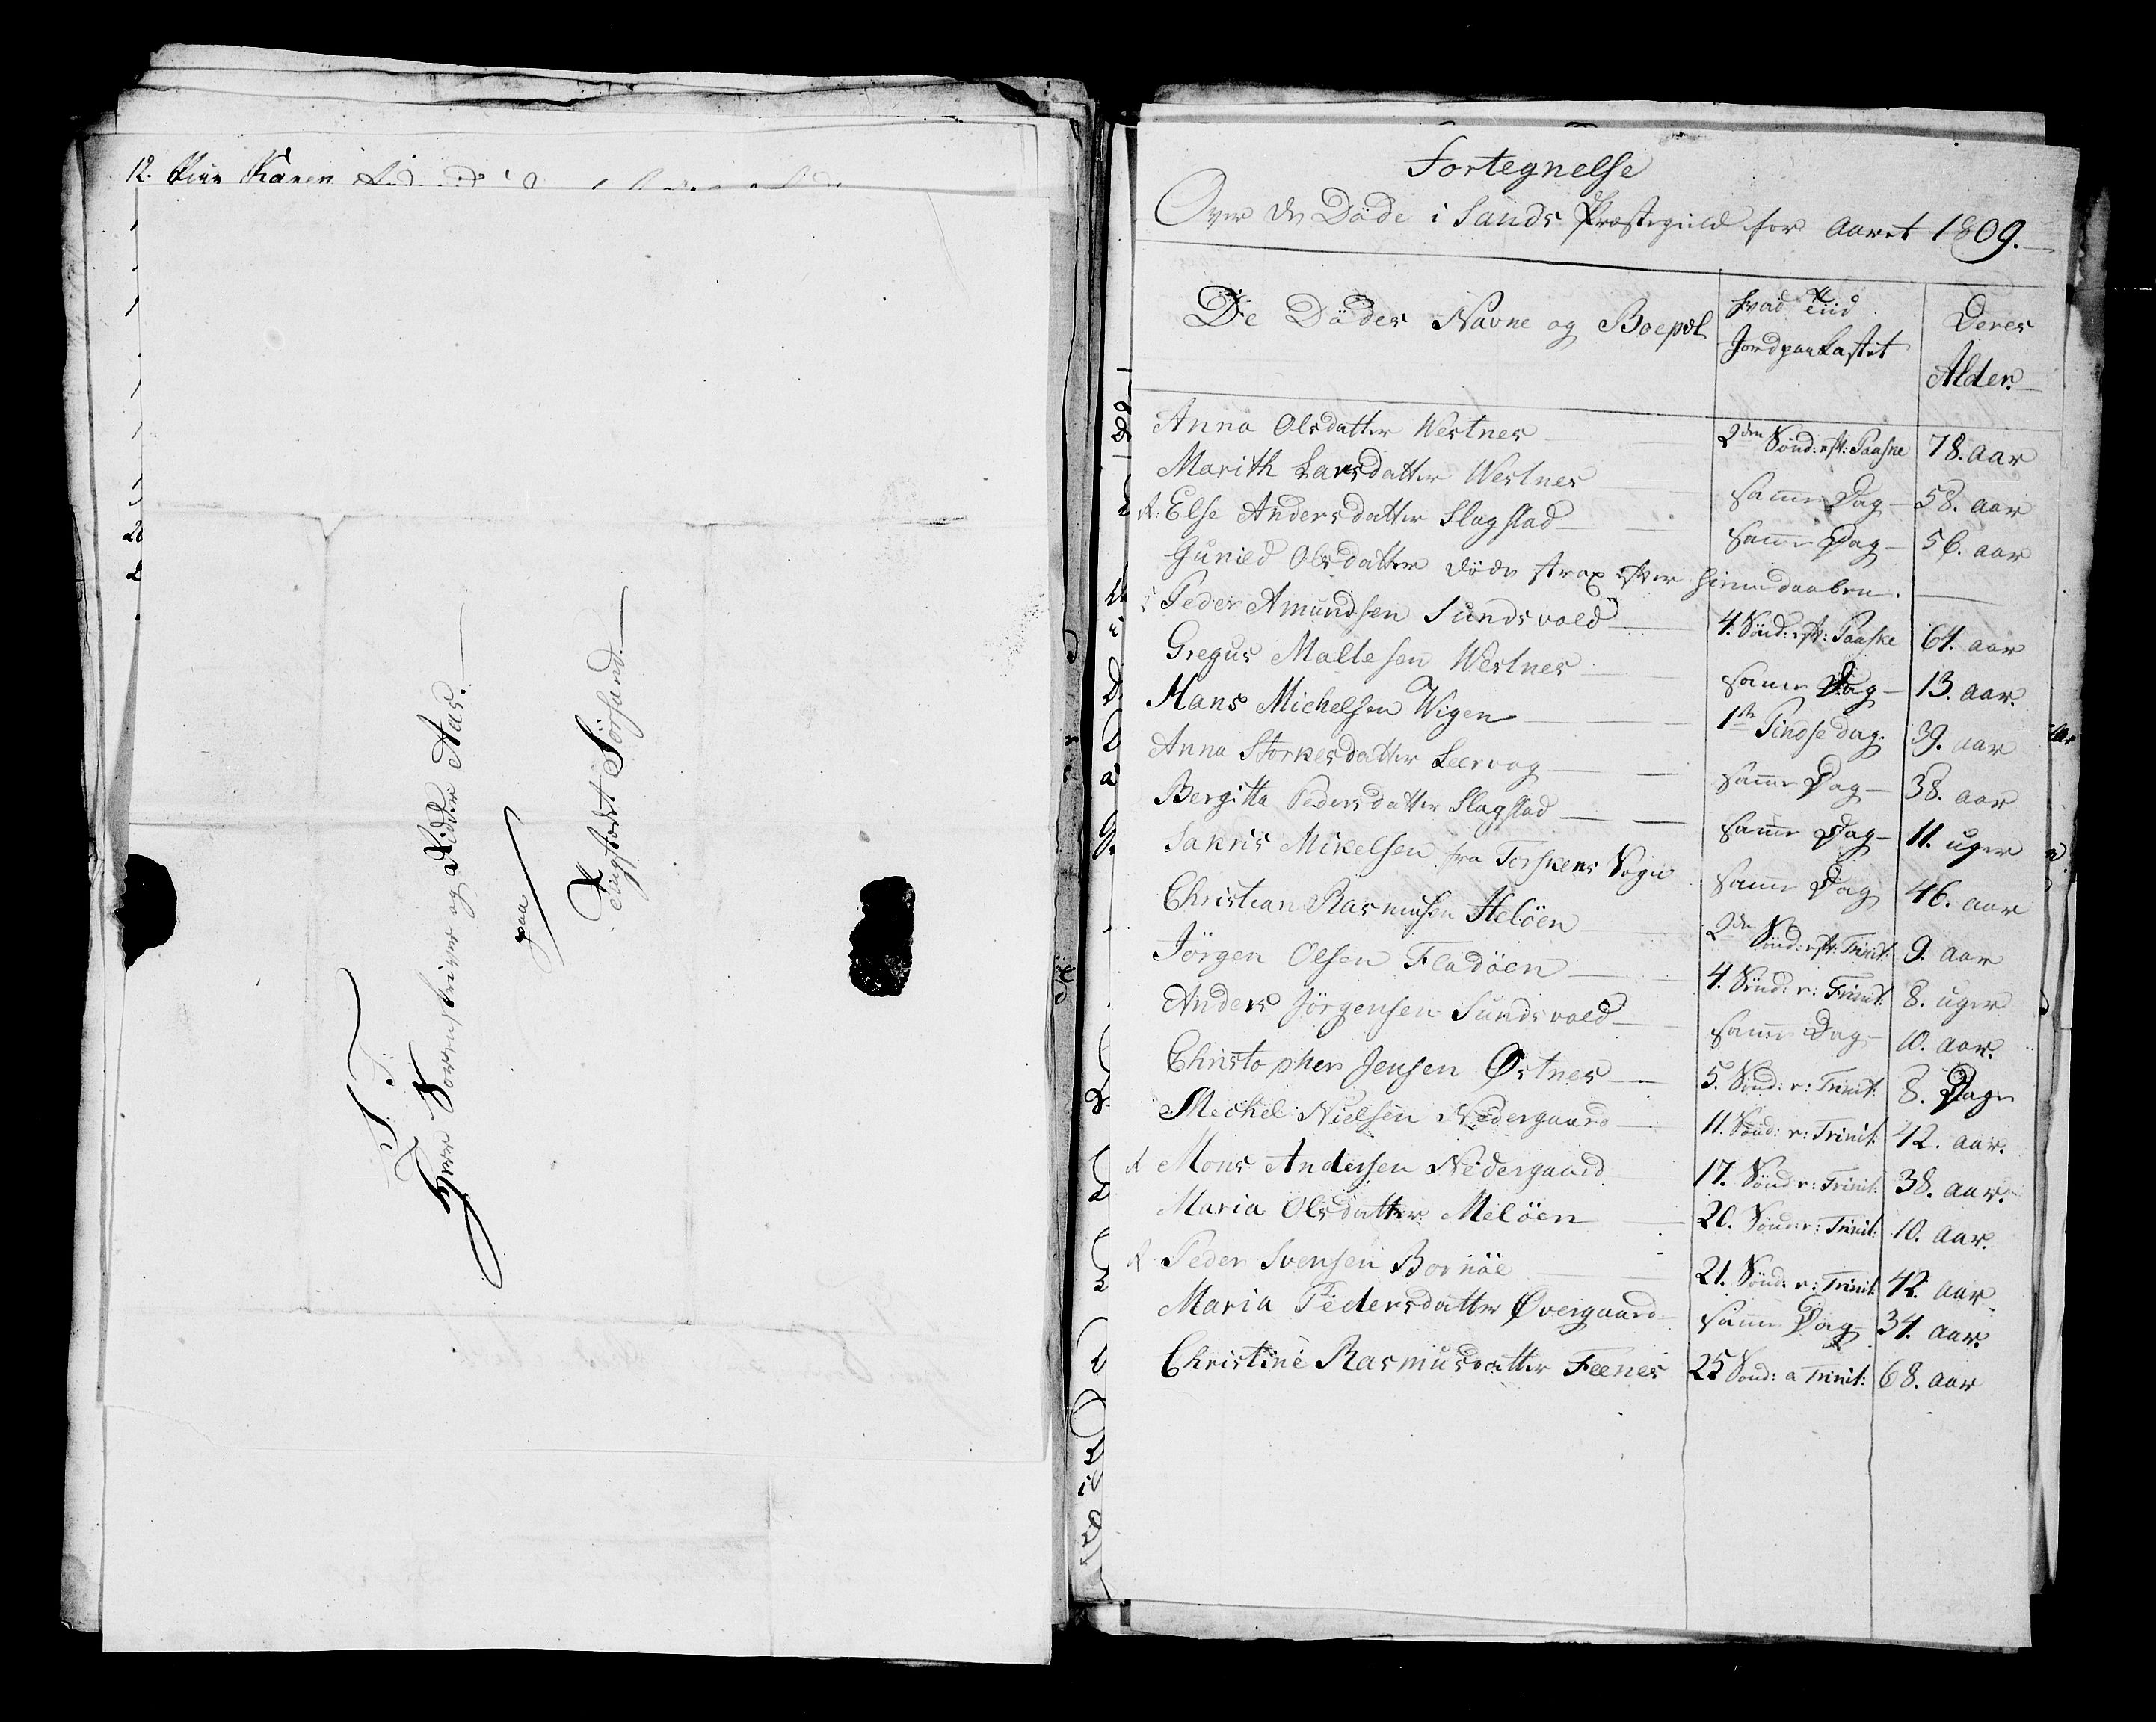 12. Karen
S. T:
Herr Sorenskriver og Ridder Aas.
paa
Tingstædet Sörsand.
Fortegnelse
Over de Döde i Sands Præstegield for Aaret 1809.
De Dödes Navne og Boepæl
hvad Tiid Jordpaakastet
Deres Alder.
Anna Olsdatter Westnes 2den Sönd: eft: Paaske 78. aar
Marith Larsdatter Westnes samme Dag 58. aar
Else Andersdatter Slagstad samme Dag 56. aar
Gunild Olsdatter döde strax efter Hiemmedaaben.
Peder Amundsen Sundsvold 4. Sönd: eft: Paaske 64. aar
Gregus Maltesen Westnes samme Dag 13. aar.
Hans Michelsen Wigen 1ste Pindsedag. 39. aar
Anna Storkersdatter Leervog samme Dag 38. aar
Bergitta Pedersdatter Slagstad samme Dag 11. uger
Sakris Mikelsen fra Torskens Sogn samme Dag 46. aar
Christian Rasmusen Helöen 2den Sönd: eft: Trinit: 9. aar
Jörgen Olsen Fladöen 4. Sönd: e: Trinit: 8. uger
Anders Jörgensen Sundsvold samme Dag 10. aar.
Christopher Jensen Østnes 5. Sönd: e: Trinit: 8. Dage
Mechel Nielsen Nedergaard 11. Sönd: e: Trinit: 42. aar.
Mons Andersen Nedergaard 17. Sönd e: Trinit: 38. aar.
Maria Olsdatter Melöen 20. Sönd: e: Trinit: 10. aar.
Peder Svensen Bornöe 21. Sönd: e: Trinit: 42. aar.
Maria Pedersdatter Øvergaard samme Dag 34. aar.
Christine Rasmusdatter Feenes 25 Sönd: a Trinit: 68. aar